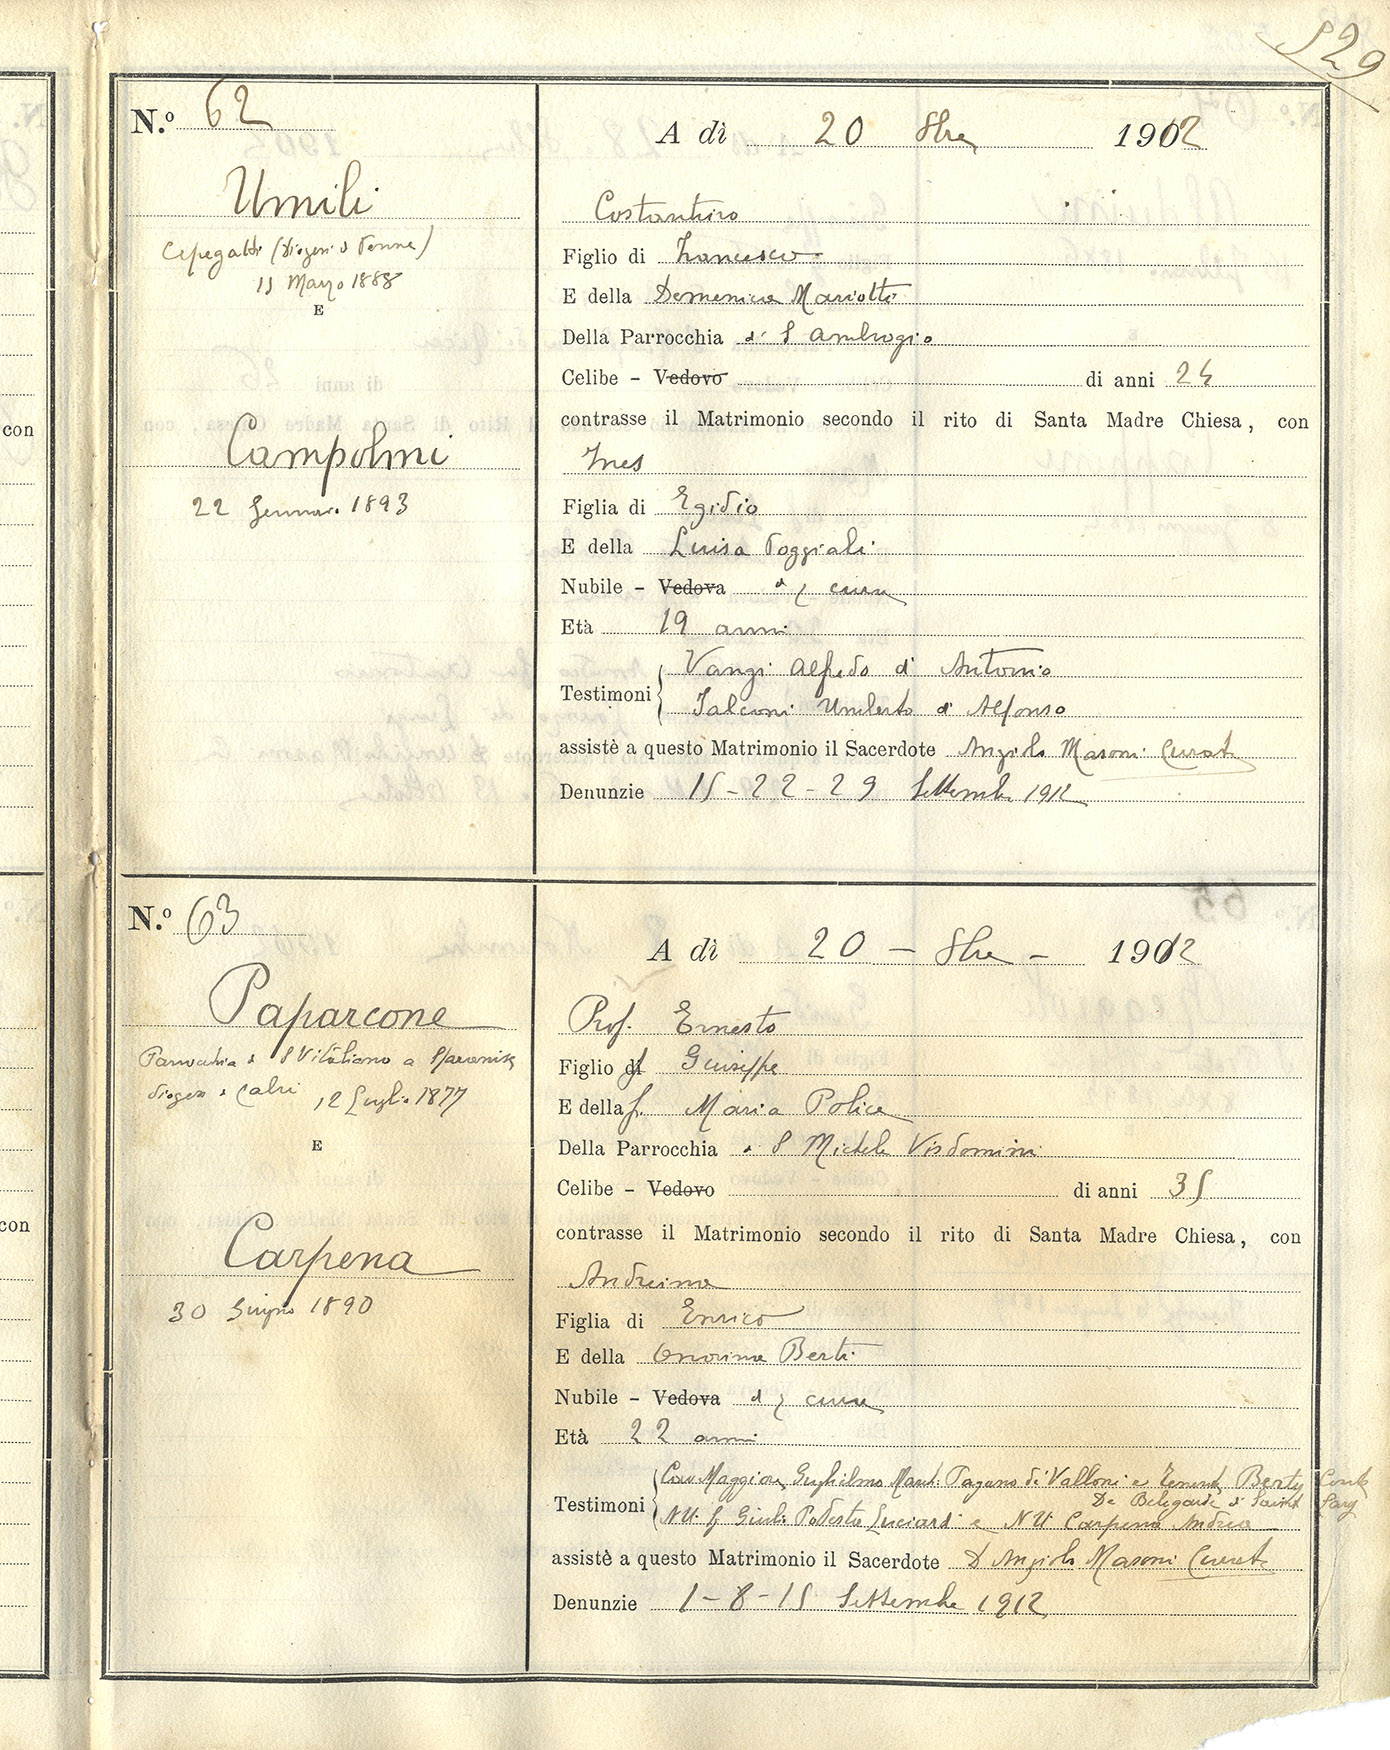 529
N.º 62
A dì 20 8bre 1912
Umili
Cepegatti (Diogesi di Penne)
11 Marzo 1888
E
Campolmi
22 Gennaio 1893
Costantino
Figlio di Francesco
E della Domenica Mariotti
Della Parrocchia di S Ambrogio
Celibe – Vedovo di anni 24
contrasse il Matrimonio secondo il rito di Santa Madre Chiesa, con
Ines
Figlia di Egidio
E della Luisa Poggiali
Nubile – Vedova di q cura
Età 19 anni
Testimoni Vangi Alfredo di Antonio
Falconi Umberto di Alfonso
assistè a questo Matrimonio il Sacerdote Angiolo Masoni Curato
Denunzie 15-22-29 Settembre 1912
N.º 63
A dì 20 – 8bre – 1912
Paparcone
Parrocchia di S Vitaliano a Sparanise
diogesi di Calvi 12 Luglio 1877
E
Carpena
30 Giugno 1890
Prof. Ernesto
Figlio di f Giuseppe
E della f. Maria Police
Della Parrocchia di S Michele Visdomini
Celibe – Vedovo di anni 35
contrasse il Matrimonio secondo il rito di Santa Madre Chiesa, con
Andreina
Figlia di Enrico
E della Onorina Berti
Nubile – Vedova di q cura
Età 22 anni
Testimoni Cav Maggiore Guglielmo March: Pagano di Valloni e Tenente Berty Conte
De Belegarde di Saint Lary
NU. f Giulio Podestà Luciardi e NU Carpena Andrea
assistè a questo Matrimonio il Sacerdote D Angiolo Masoni Curato
Denunzie 1-8-15 Settembre 1912
con
con